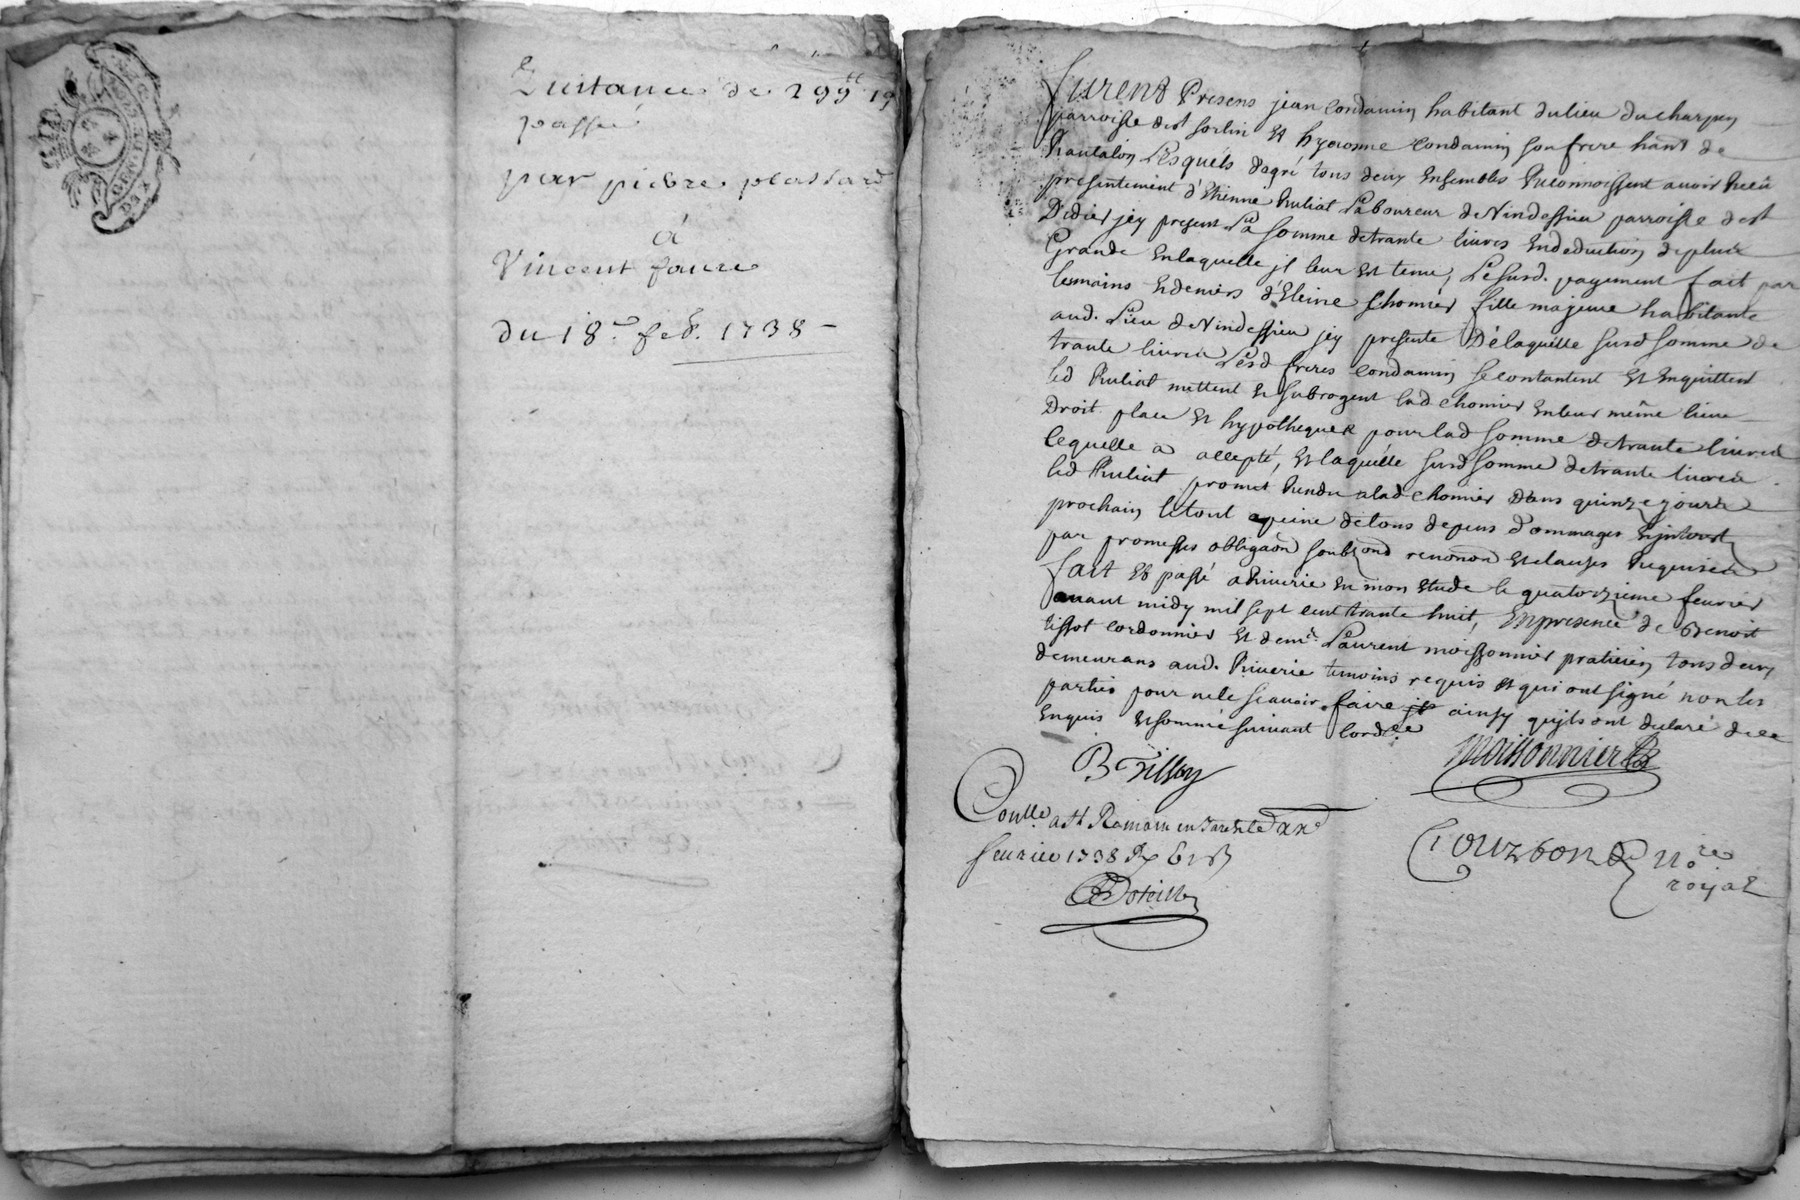 Quitance de 299ᵗᵗ 19
passée
par pierre plassard
à
Vincent faure
du 18ᵉ feb. 1738
furent Presens jean Condamin habitant du lieu du charpin
parroisse de st sorlin et hyeronme Condamin son frere hant de
Chantalon Lesquels dagré tous deux Ensembles Reconnoissent auoir Receu
presentement d'Etienne Ruliat Laboureur de Vindessieu parroisse de st
Didier jcy present La somme de trante liures En deduction de plus
Grande En laquelle jl leur est tenu, Le susd. payement fait par
les mains Et deniers d'Eleine Chomier fille majeure habitante
aud. Lieu de Vindessieu jcy presente De laquelle susd somme de
trante liures Lesd freres Condamin se contantent Et En quittent
led Ruliat mettent Et subrogent lad. Chomier En leur même lieu
Droit place Et hypotheque pour lad somme de trante liures
Lequelle a accepté, Et laquelle susd somme de trante liures
led Ruliat promet Rendre a lad Chomier Dans quinze jours
prochain le tout a peine de tous depens Dommages Et jnterests
par promesses obligaon soubz ond renonon Et clauses Requises
fait Et passé a Riuerie En mon Etude le quatorzieme feurier
auant midy mil sept cent trante huit, En presence de Benoit
tissot cordonnier Et de me Laurent moissonnier praticien tous deux
demeurans aud. Riuerie temoins requis Et qui ont signé non les
parties pour ne le scauoir faire ainsy qu'jls ont declaré de ce
Enquis Et sommé suiuant lordce
B Tissot
Moissonnier
Conllé a St Romain en Jarest le xxe
feurier 1738
Gourbon no.re
royal